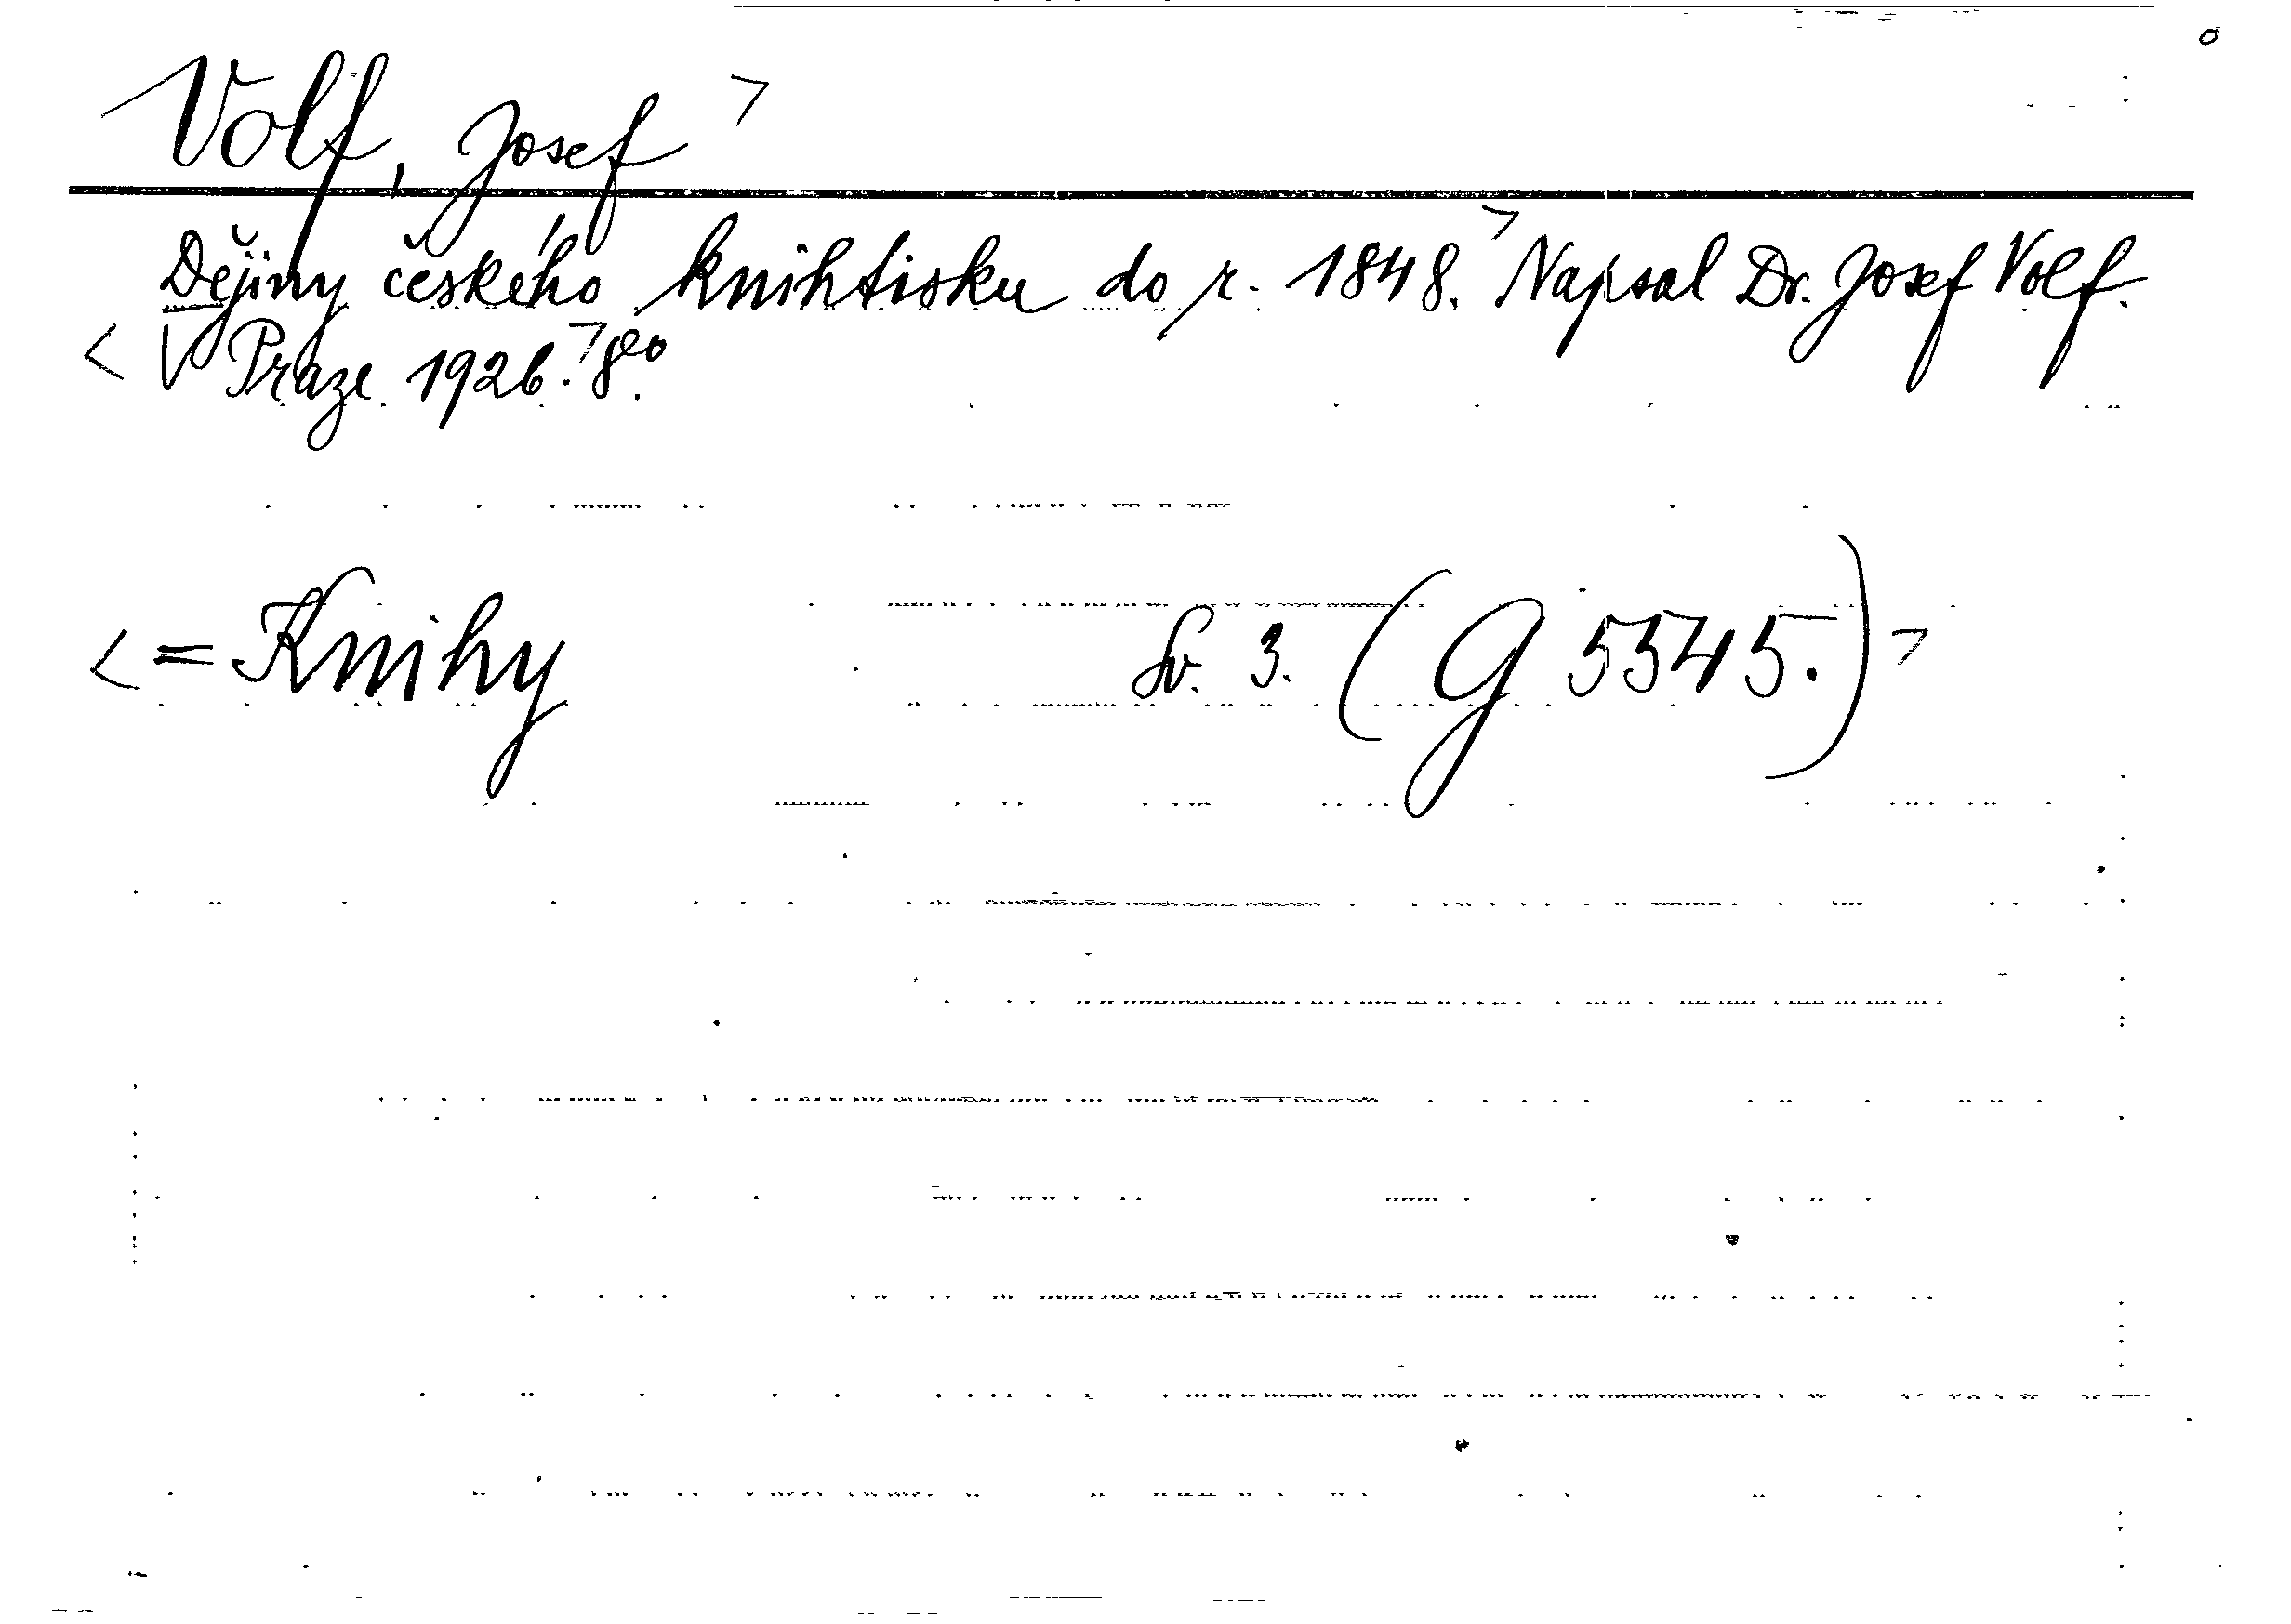 Volf, Josef ¬
Dějiny českého knihtisku do r. 1848. ¬ Napsal Dr. Josef Volf.
< V Praze 1926. ¬ 8⁰.
< = Knihy Sv. 3. (G 5545.) ¬